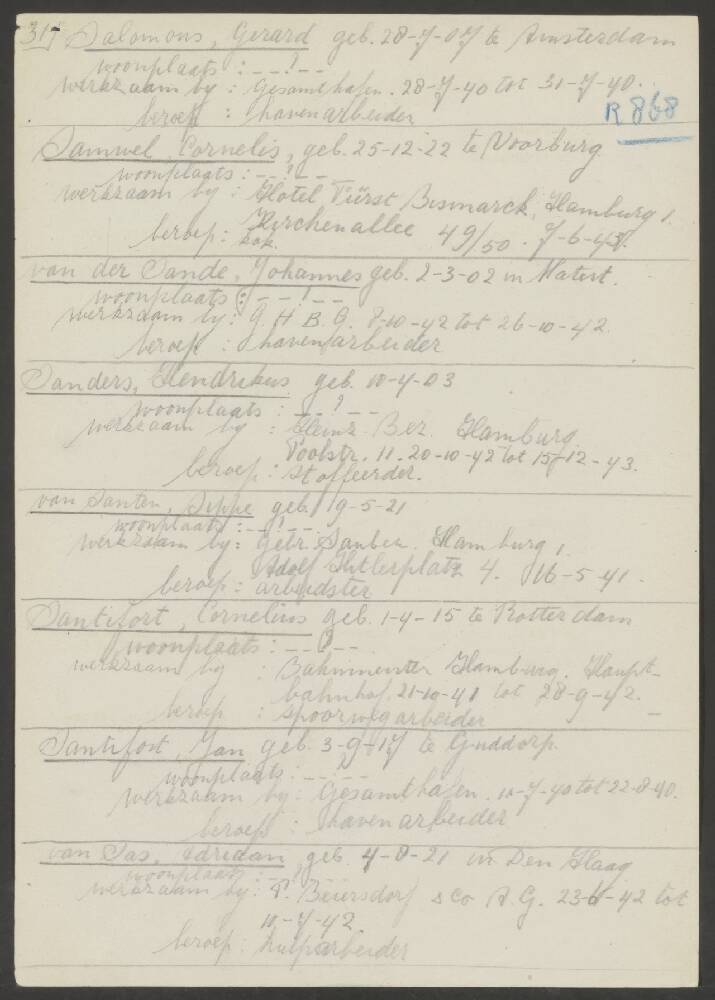 Salomons, Gerard geb. 28-7-07 te Amsterdam
woonplaats : - - ? - -
werkzaam by : Gesamthafen. 28-7-40 tot 31-7-40.
beroep : havenarbeider
R 868
Samwel, Cornelis, geb. 25-12-22 te Voorburg
woonplaats : - - ? - -
werkzaam by : Hotel Fürst Bismarck, Hamburg 1.
Kirchenallee 49/50. 7-6-43.
beroep : kok.
van der Sande, Johannes geb. 2-3-02 in
woonplaats : - - ? - -
werkzaam by : G. H. B. G. 8-10-42 tot 26-10-42.
beroep : havenarbeider
Sanders, Hendrikus geb. 10-4-03
woonplaats : - - ? - -
werkzaam by : Heinz Hamburg
Poolstr. 11. 20-10-42 tot 15-12-43.
beroep : stoffeerder.
van Santen, geb. 19-5-21
woonplaats : - - ? - -
werkzaam by : Gebr. Hamburg 1
Adolf Hitlerplatz 4. 16-5-41.
beroep : arbeidster
Santifort, Cornelius geb. 1-4-15 te Rotterdam
woonplaats : - - ? - -
werkzaam by : Bahnmeister Hamburg. Haupt-
bahnhof. 21-10-41 tot 28-9-42.
beroep : spoorwegarbeider
Santifort, Jan geb. 3-9-17 te
woonplaats : - - ? - -
werkzaam by : Gesamthafen. 10-7-40 tot 22-8-40.
beroep : havenarbeider
van Sas, Adriaan, geb. 4-8-21 in Den Haag
woonplaats : - - ? - -
werkzaam by : P. Beiersdorf & Co A.G. 23-6-42 tot
10-7-42.
beroep : hulparbeider